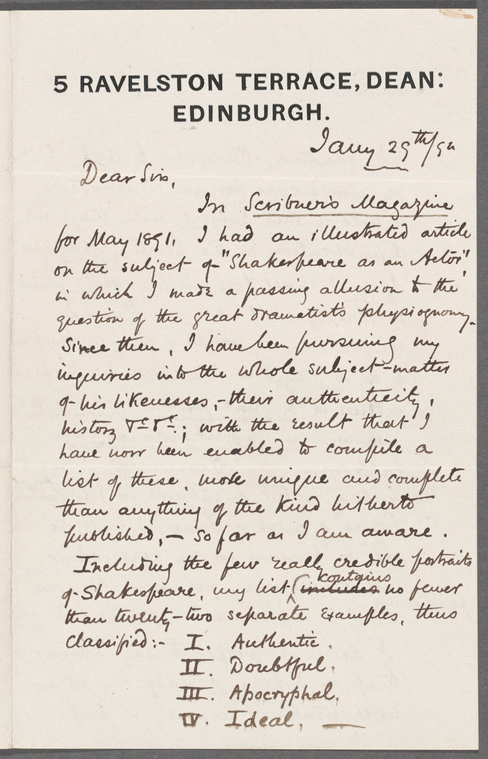 5 RAVELSTON TERRACE, DEAN:
EDINBURGH.
Jany 29th/94
Dear Sirs,
In Scribner's Magazine
for May 1891, I had an illustrated article
on the subject of "Shakespeare as an Actor"
in which I made a passing allusion to the
question of the great dramatist's physiognomy.
Since then, I have been pursuing my
inquiries into the whole subject-matter
of his likenesses,- their authenticity,
history &c. &c.; with the result that I
have now been enabled to compile a
list of these, more unique and complete
than anything of the kind hitherto
published, — so far as I am aware.
Including the few really credible portraits
of Shakespeare, my list contains includes no fewer
than twenty-two separate examples, thus
classified:- I. Authentic.
II. Doubtful.
III. Apocryphal.
IV. Ideal. —